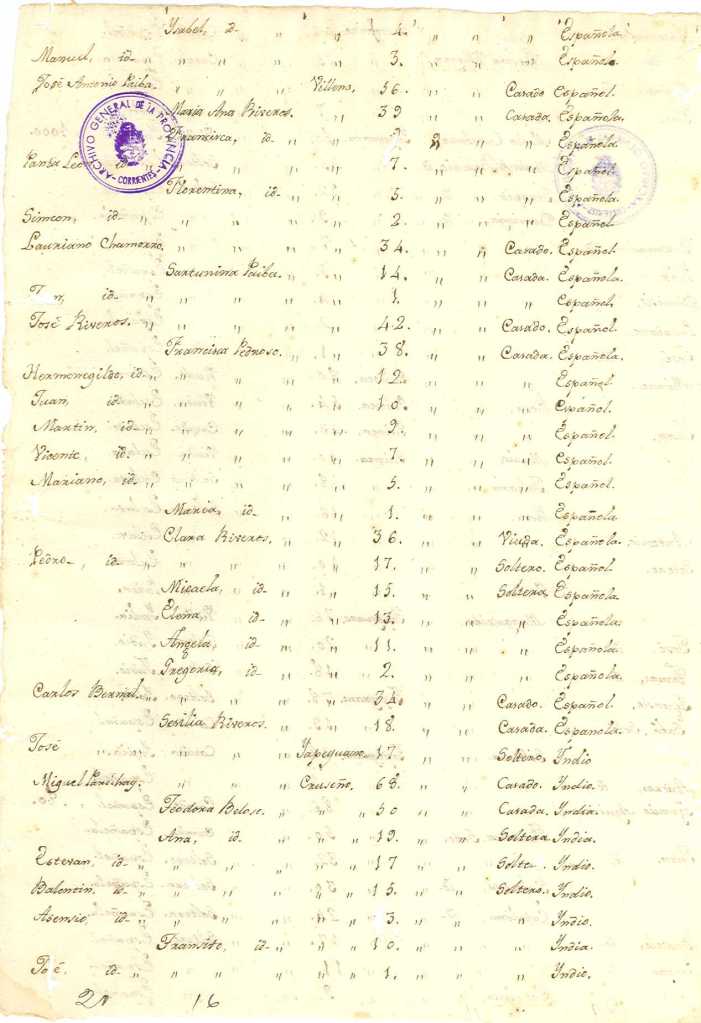 Ysabel, id. „ „ 4. „ „ „ Española
Manuel, id. „ „ „ 3. „ „ „ Español.
José Antonio Paiba. „ „ „ Villena, 56. „ „ Casado Español.
Maria Ana Riveros. „ 39 „ „ Casada. Española.
Francisca, id. „ „ „ „ „ Española
id. „ „ „ „ 7. „ „ „ Español.
Florentina, id. „ „ 5. „ „ „ Española.
Simeon, id. „ „ „ „ 2. „ „ „ Español.
Lauriano Chamorro. „ „ „ „ 34. „ „ Casado. Español.
Sarturnina Paiba. „ „ 14. „ „ Casada. Española.
id. „ „ „ „ „ 1. „ „ „ Español.
José Riveros. „ „ „ „ „ 42. „ „ Casado. Español.
Francisca Pedroso. „ „ 38. „ „ Casada. Española.
Hermenegildo, id. „ „ „ „ „ 12. „ „ „ Español.
Juan, id. „ „ „ „ „ 10. „ „ „ Español.
Martin, id. „ „ „ „ „ 9. „ „ „ Español.
Vicente, id. „ „ „ „ „ 7. „ „ „ Español.
Mariano, id. „ „ „ „ „ 5. „ „ „ Español.
Maria, id. „ „ 1. „ „ „ Española
Clara Riveros, „ „ 36. „ „ Viuda. Española.
Pedro, id. „ „ „ „ „ 17. „ „ Soltero. Español
Micaela, id. „ „ 15. „ „ Soltera, Española
Elena, id. „ „ 13. „ „ „ Española.
Angela, id. „ „ 11. „ „ „ Española.
Gregoria, id. „ „ 2. „ „ „ Española.
Carlos Bernal. „ „ „ „ 34. „ „ Casado. Español.
Sesilia Riveros. „ „ 18. „ „ Casada. Española.
José „ „ „ Yapeyuano. 17. „ „ Soltero, Yndio
Miguel „ „ „ Cruseño. 68. „ „ Casado. Yndio.
Teodora Beloso. „ „ 50 „ „ Casada. Yndia.
Ana, id. „ „ „ 19. „ „ Soltera Yndia.
Estevan, id. „ „ „ „ „ 17 „ „ Solte. Yndio.
Balentin, id. „ „ „ „ „ 15. „ „ Soltero. Yndio.
Asensio, id. „ „ „ „ „ 3. „ „ „ Yndio.
Transito, id. „ „ „ 10. „ „ „ Yndia.
José. id. „ „ „ „ „ 1. „ „ „ Yndio.
16
ARCHIVO GENERAL DE LA PROVINCIA
CORRIENTES